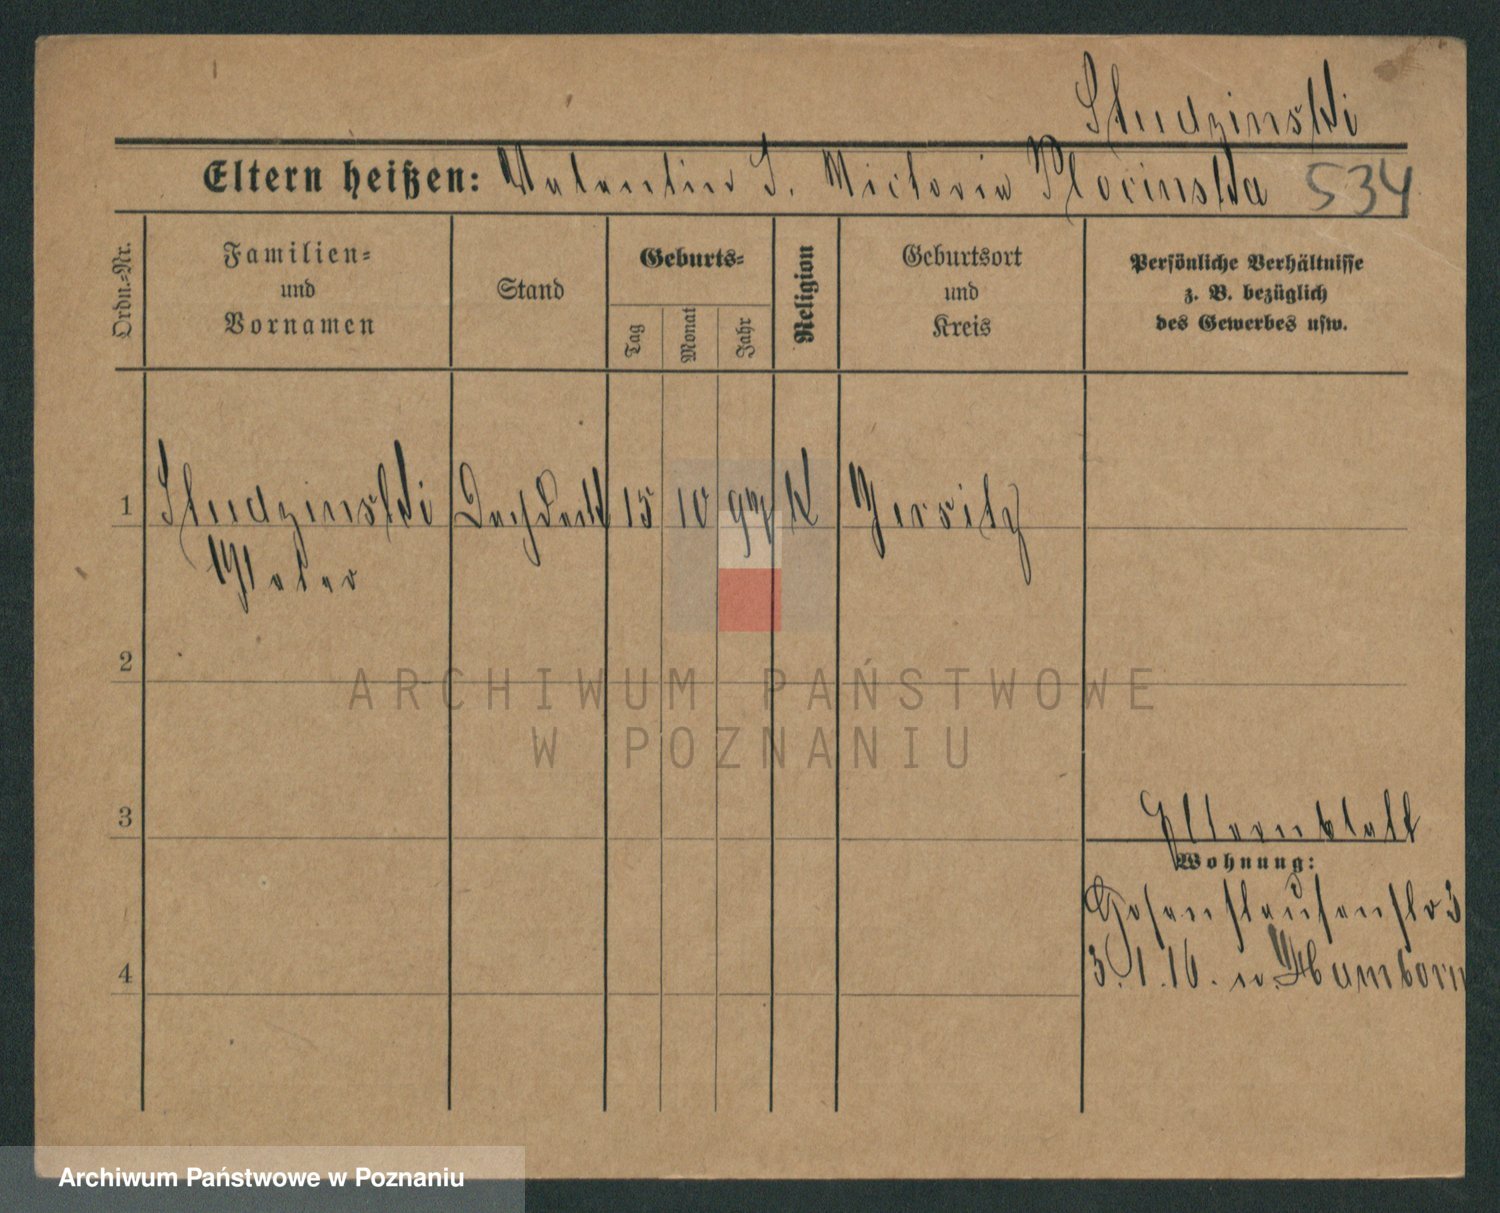 Studzinski
Eltern heißen: Valentin S. Victoria Plocinska 534
Ordn.-Nr.
Familien-
und
Vornamen
Stand
Geburts-
Tag
Monat
Jahr
Religion
Geburtsort
und
Kreis
Persönliche Verhältnisse
z. B. bezüglich
des Gewerbes usw.
1 Studzinski Dachdeck 15 10 97 K Jersitz
Peter
2
ARCHIWUM PAŃSTWOWE
W POZNANIU
3
Elternblatt
Wohnung:
Hohenstaufenstr 3
4 3.1.16. n. Hamborn
Archiwum Państwowe w Poznaniu